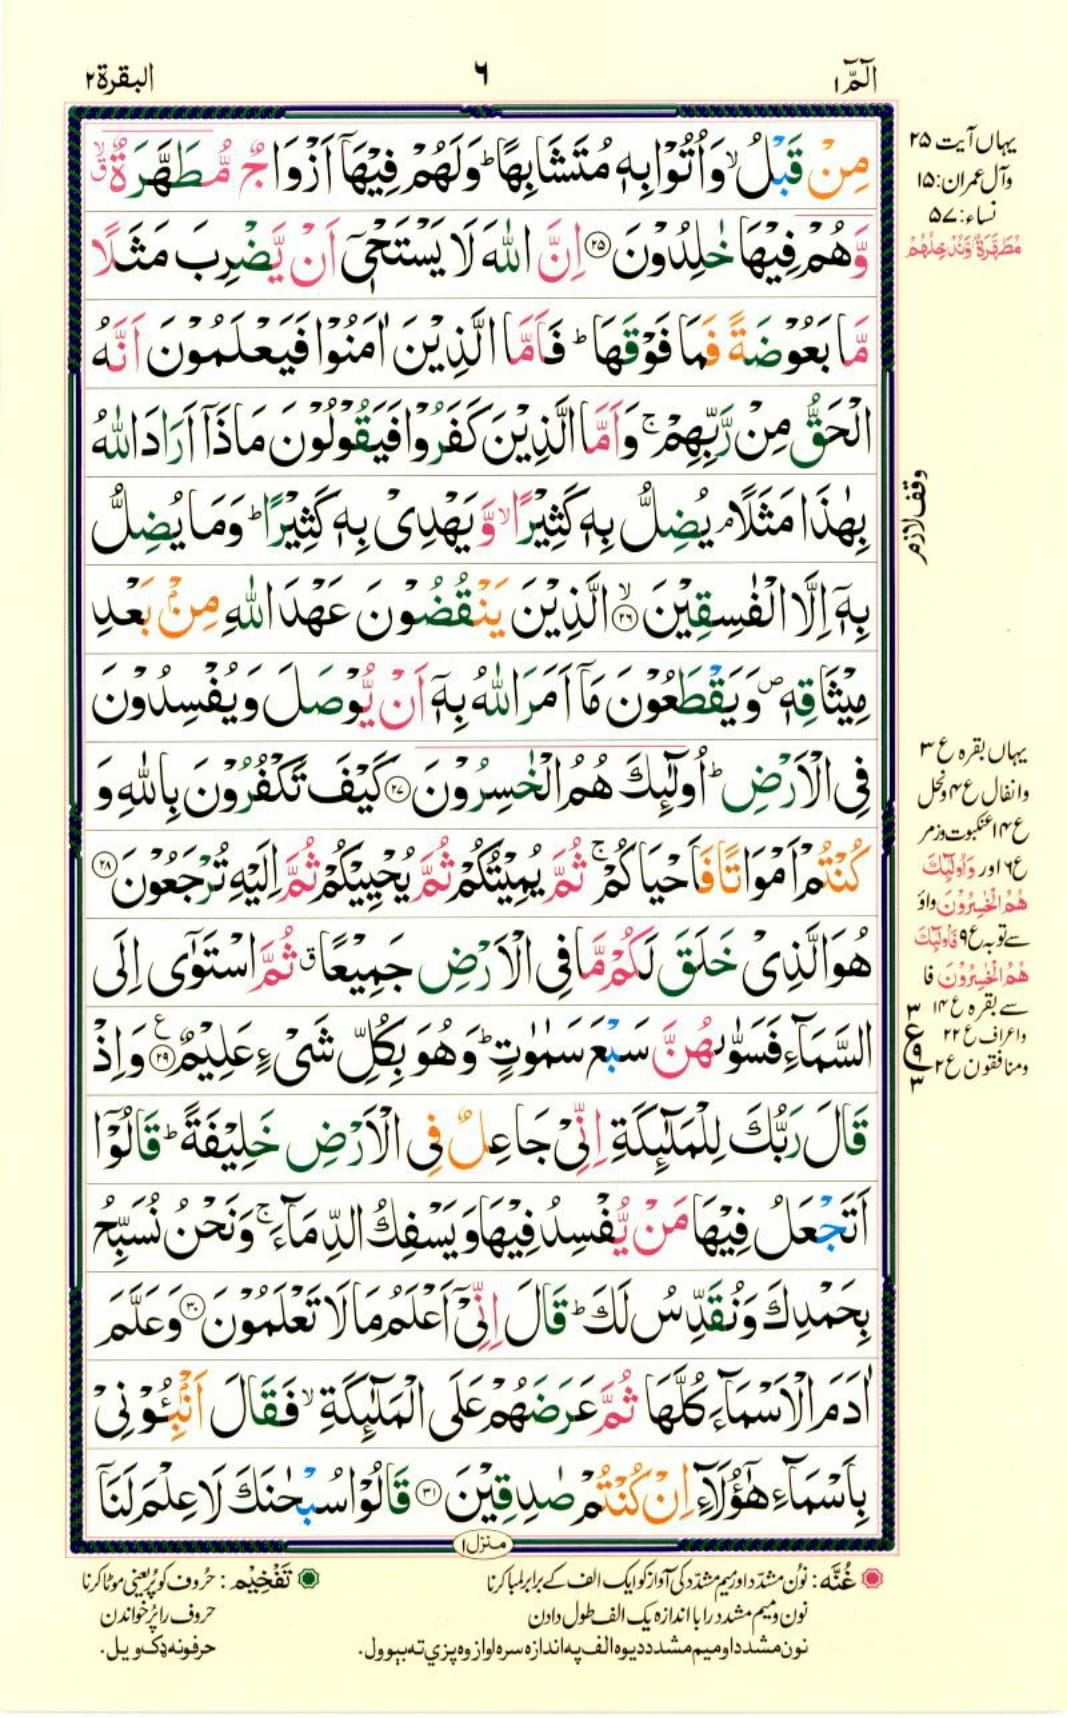 الٓمّٓ ١
٦
البقرة ٢
مِنْ قَبْلُ ۙ وَاُتُوْا بِهٖ مُتَشَابِهًا ؕ وَلَهُمْ فِيْهَاۤ اَزْوَاجٌ مُّطَهَّرَةٌ ۙۗ
وَّهُمْ فِيْهَا خٰلِدُوْنَ ﴿۲۵﴾ اِنَّ اللّٰهَ لَا يَسْتَحْيٖۤ اَنْ يَّضْرِبَ مَثَلًا
مَّا بَعُوْضَةً فَمَا فَوْقَهَا ؕ فَاَمَّا الَّذِيْنَ اٰمَنُوْا فَيَعْلَمُوْنَ اَنَّهُ
الْحَقُّ مِنْ رَّبِّهِمْ ۚ وَاَمَّا الَّذِيْنَ كَفَرُوْا فَيَقُوْلُوْنَ مَاذَاۤ اَرَادَ اللّٰهُ
بِهٰذَا مَثَلًا ۘ يُضِلُّ بِهٖ كَثِيْرًا ۙ وَّيَهْدِىْ بِهٖ كَثِيْرًا ؕ وَمَا يُضِلُّ
بِهٖۤ اِلَّا الْفٰسِقِيْنَ ۙ﴿۲۶﴾ الَّذِيْنَ يَنْقُضُوْنَ عَهْدَ اللّٰهِ مِنْۢ بَعْدِ
مِيْثَاقِهٖ ۪ وَيَقْطَعُوْنَ مَاۤ اَمَرَ اللّٰهُ بِهٖۤ اَنْ يُّوْصَلَ وَيُفْسِدُوْنَ
فِى الْاَرْضِ ؕ اُولٰٓئِكَ هُمُ الْخٰسِرُوْنَ ﴿۲۷﴾ كَيْفَ تَكْفُرُوْنَ بِاللّٰهِ وَ
كُنْتُمْ اَمْوَاتًا فَاَحْيَاكُمْ ۚ ثُمَّ يُمِيْتُكُمْ ثُمَّ يُحْيِيْكُمْ ثُمَّ اِلَيْهِ تُرْجَعُوْنَ ﴿۲۸﴾
هُوَ الَّذِىْ خَلَقَ لَكُمْ مَّا فِى الْاَرْضِ جَمِيْعًا ۗ ثُمَّ اسْتَوٰۤى اِلَى
السَّمَآءِ فَسَوّٰىهُنَّ سَبْعَ سَمٰوٰتٍ ؕ وَهُوَ بِكُلِّ شَىْءٍ عَلِيْمٌ ﴿۲۹﴾ ع وَاِذْ
قَالَ رَبُّكَ لِلْمَلٰٓئِكَةِ اِنِّىْ جَاعِلٌ فِى الْاَرْضِ خَلِيْفَةً ؕ قَالُوْۤا
اَتَجْعَلُ فِيْهَا مَنْ يُّفْسِدُ فِيْهَا وَيَسْفِكُ الدِّمَآءَ ۚ وَنَحْنُ نُسَبِّحُ
بِحَمْدِكَ وَنُقَدِّسُ لَكَ ؕ قَالَ اِنِّىْۤ اَعْلَمُ مَا لَا تَعْلَمُوْنَ ﴿۳۰﴾ وَعَلَّمَ
اٰدَمَ الْاَسْمَآءَ كُلَّهَا ثُمَّ عَرَضَهُمْ عَلَى الْمَلٰٓئِكَةِ ۙ فَقَالَ اَنْۢبِئُوْنِىْ
بِاَسْمَآءِ هٰٓؤُلَآءِ اِنْ كُنْتُمْ صٰدِقِيْنَ ﴿۳۱﴾ قَالُوْا سُبْحٰنَكَ لَا عِلْمَ لَنَاۤ
منزل ١
یہاں آیت ۲۵
وآل عمران: ۱۵
نساء: ۵۷
مُطَهَّرَةٌ وَّنُدْخِلُهُمْ
وقف لازم
یہاں بقرہ ع ۳
وانفال ع ۴ ونحل
ع ۱۴ عنکبوت وزمر
ع ۶ اور وَاُولٰٓئِكَ
هُمُ الْخٰسِرُوْنَ واؤ
سے توبہ ع ۹ فَاُولٰٓئِكَ
هُمُ الْخٰسِرُوْنَ فا
سے بقرہ ع ۱۴
واعراف ع ۲۲
ومنافقون ع ۲
۳
ع
۹
۳
غُنَّه: نون مشدد اور میم مشدد کی آواز کو ایک الف کے برابر لمبا کرنا
نون ومیم مشدد را با اندازه یک الف طول دادن
نون مشدد او میم مشدد د یوه الف په اندازه سره اواز وه پزې ته بېوول.
تَفْخِيْم: حروف کو پُر یعنی موٹا کرنا
حروف را پُر خواندن
حرفونه ډک ویل.